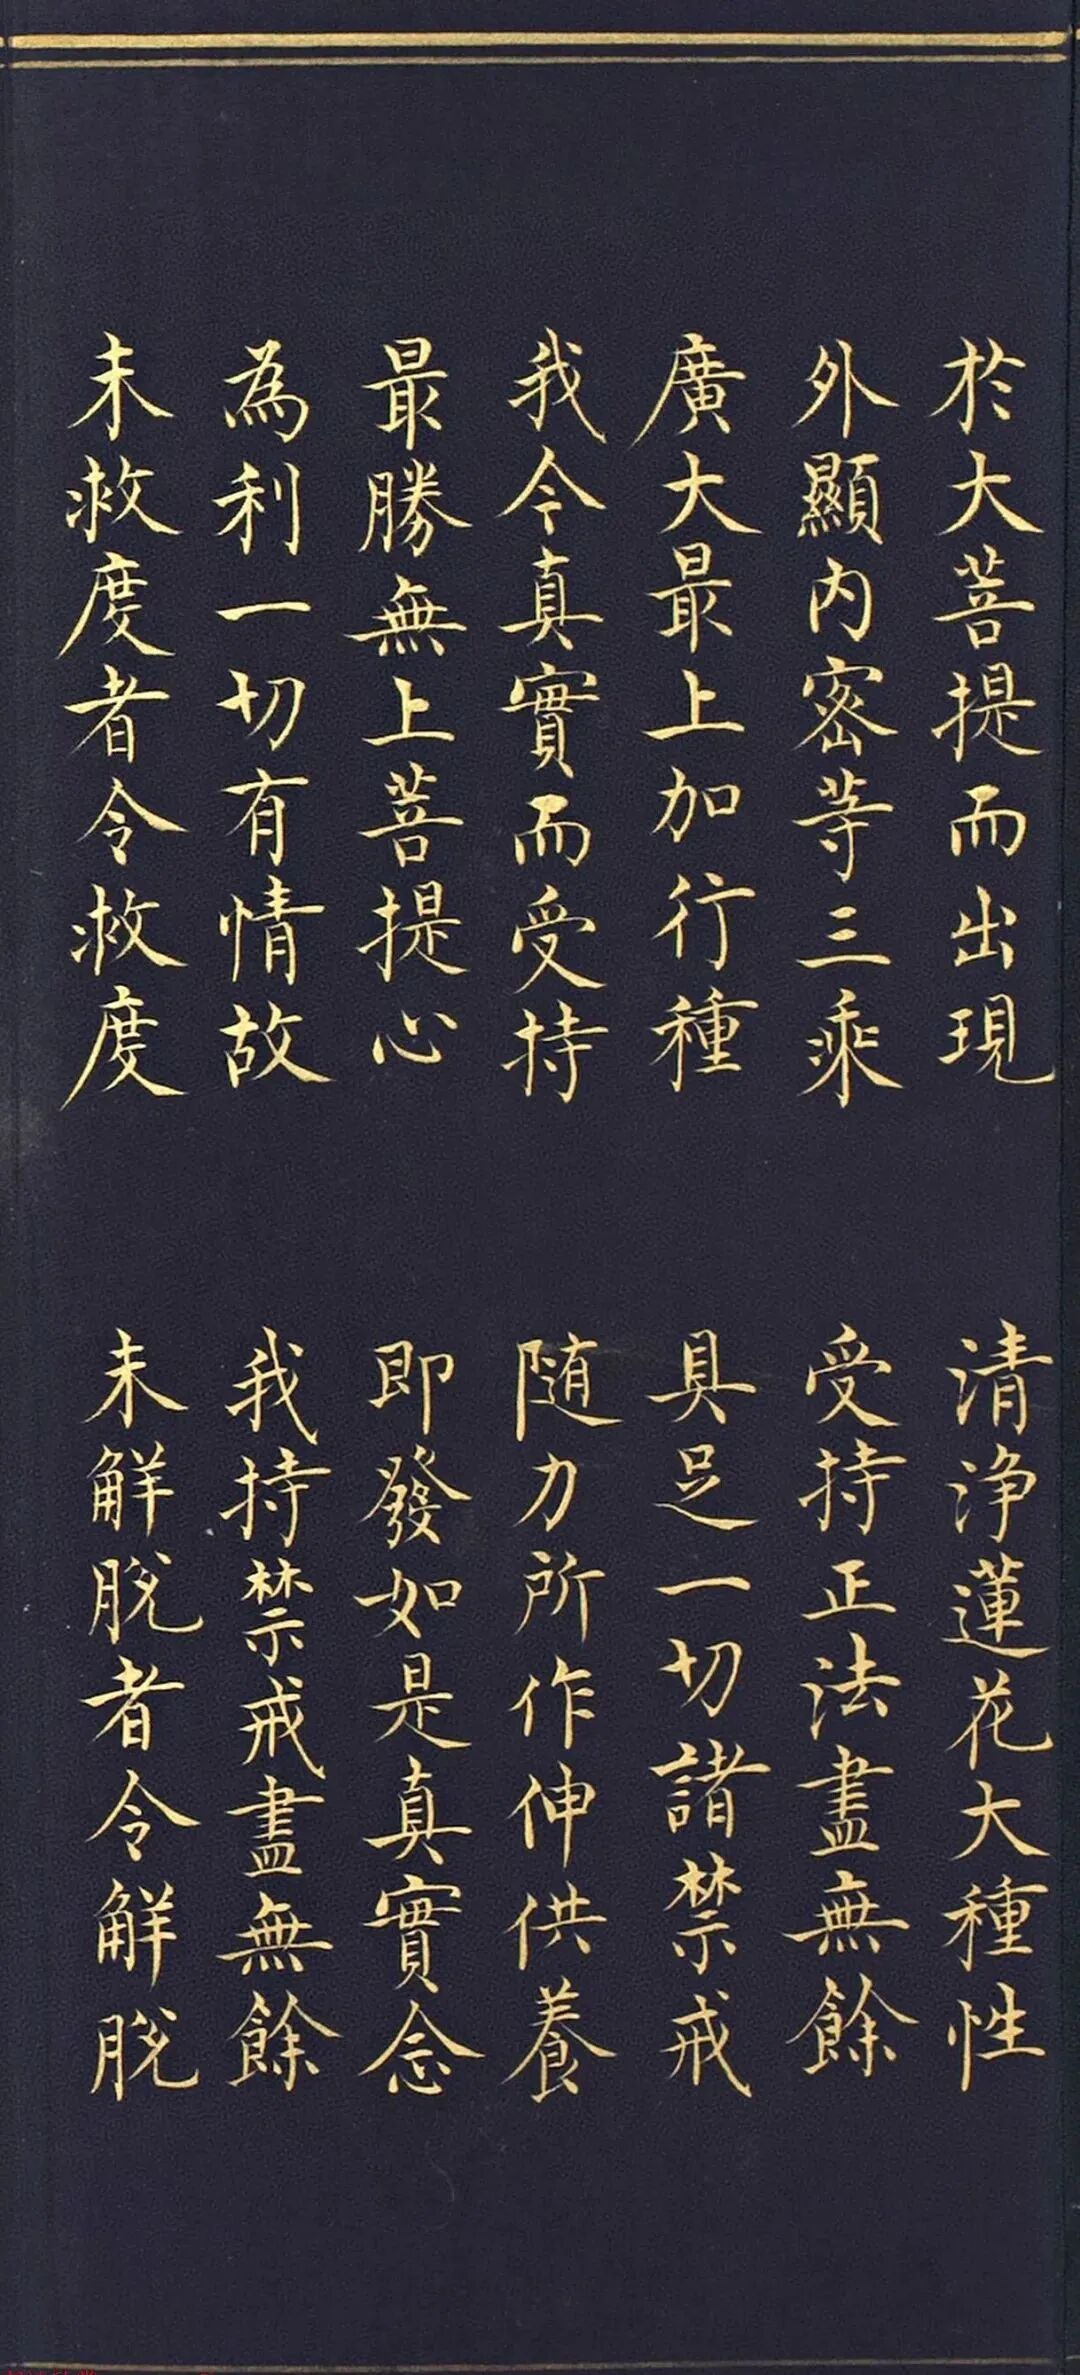 於大菩提而出現
清淨蓮花大種性
外顯內密等三乘
受持正法盡無餘
廣大最上加行種
具足一切諸禁戒
我今真實而受持
随力所作伸供養
最勝無上菩提心
即發如是真實念
為利一切有情故
我持禁戒盡無餘
未救度者令救度
未解脫者令解脫